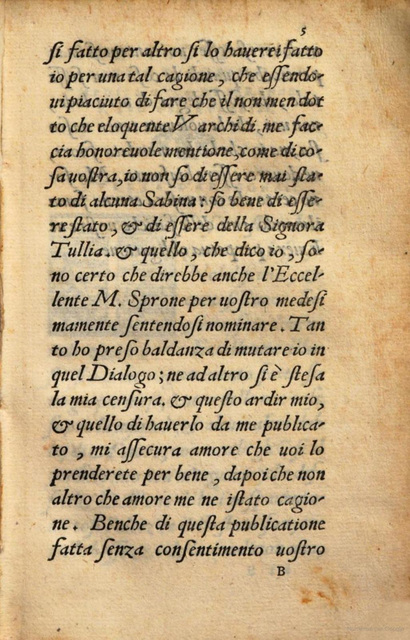 5
si fatto per altro si lo hauerei fatto
io per una tal cagione, che essendo-
ui piaciuto di fare che il non men dot
to che eloquente Varchi di me fac-
cia honoreuole mentione, come di co-
sa uostra, io non so di essere mai sta-
to di alcuna Sabina: so bene di esse-
re stato, & di essere della Signora
Tullia. & quello, che dico io, so-
no certo che direbbe anche l'Eccel-
lente M. Sprone per uostro medesi
mamente sentendosi nominare. Tan
to ho preso baldanza di mutare io in
quel Dialogo; ne ad altro si è stesa
la mia censura. & questo ardir mio,
& quello di hauerlo da me publica-
to, mi assecura amore che uoi lo
prenderete per bene, dapoi che non
altro che amore me ne istato cagio-
ne. Benche di questa publicatione
fatta senza consentimento uostro
B